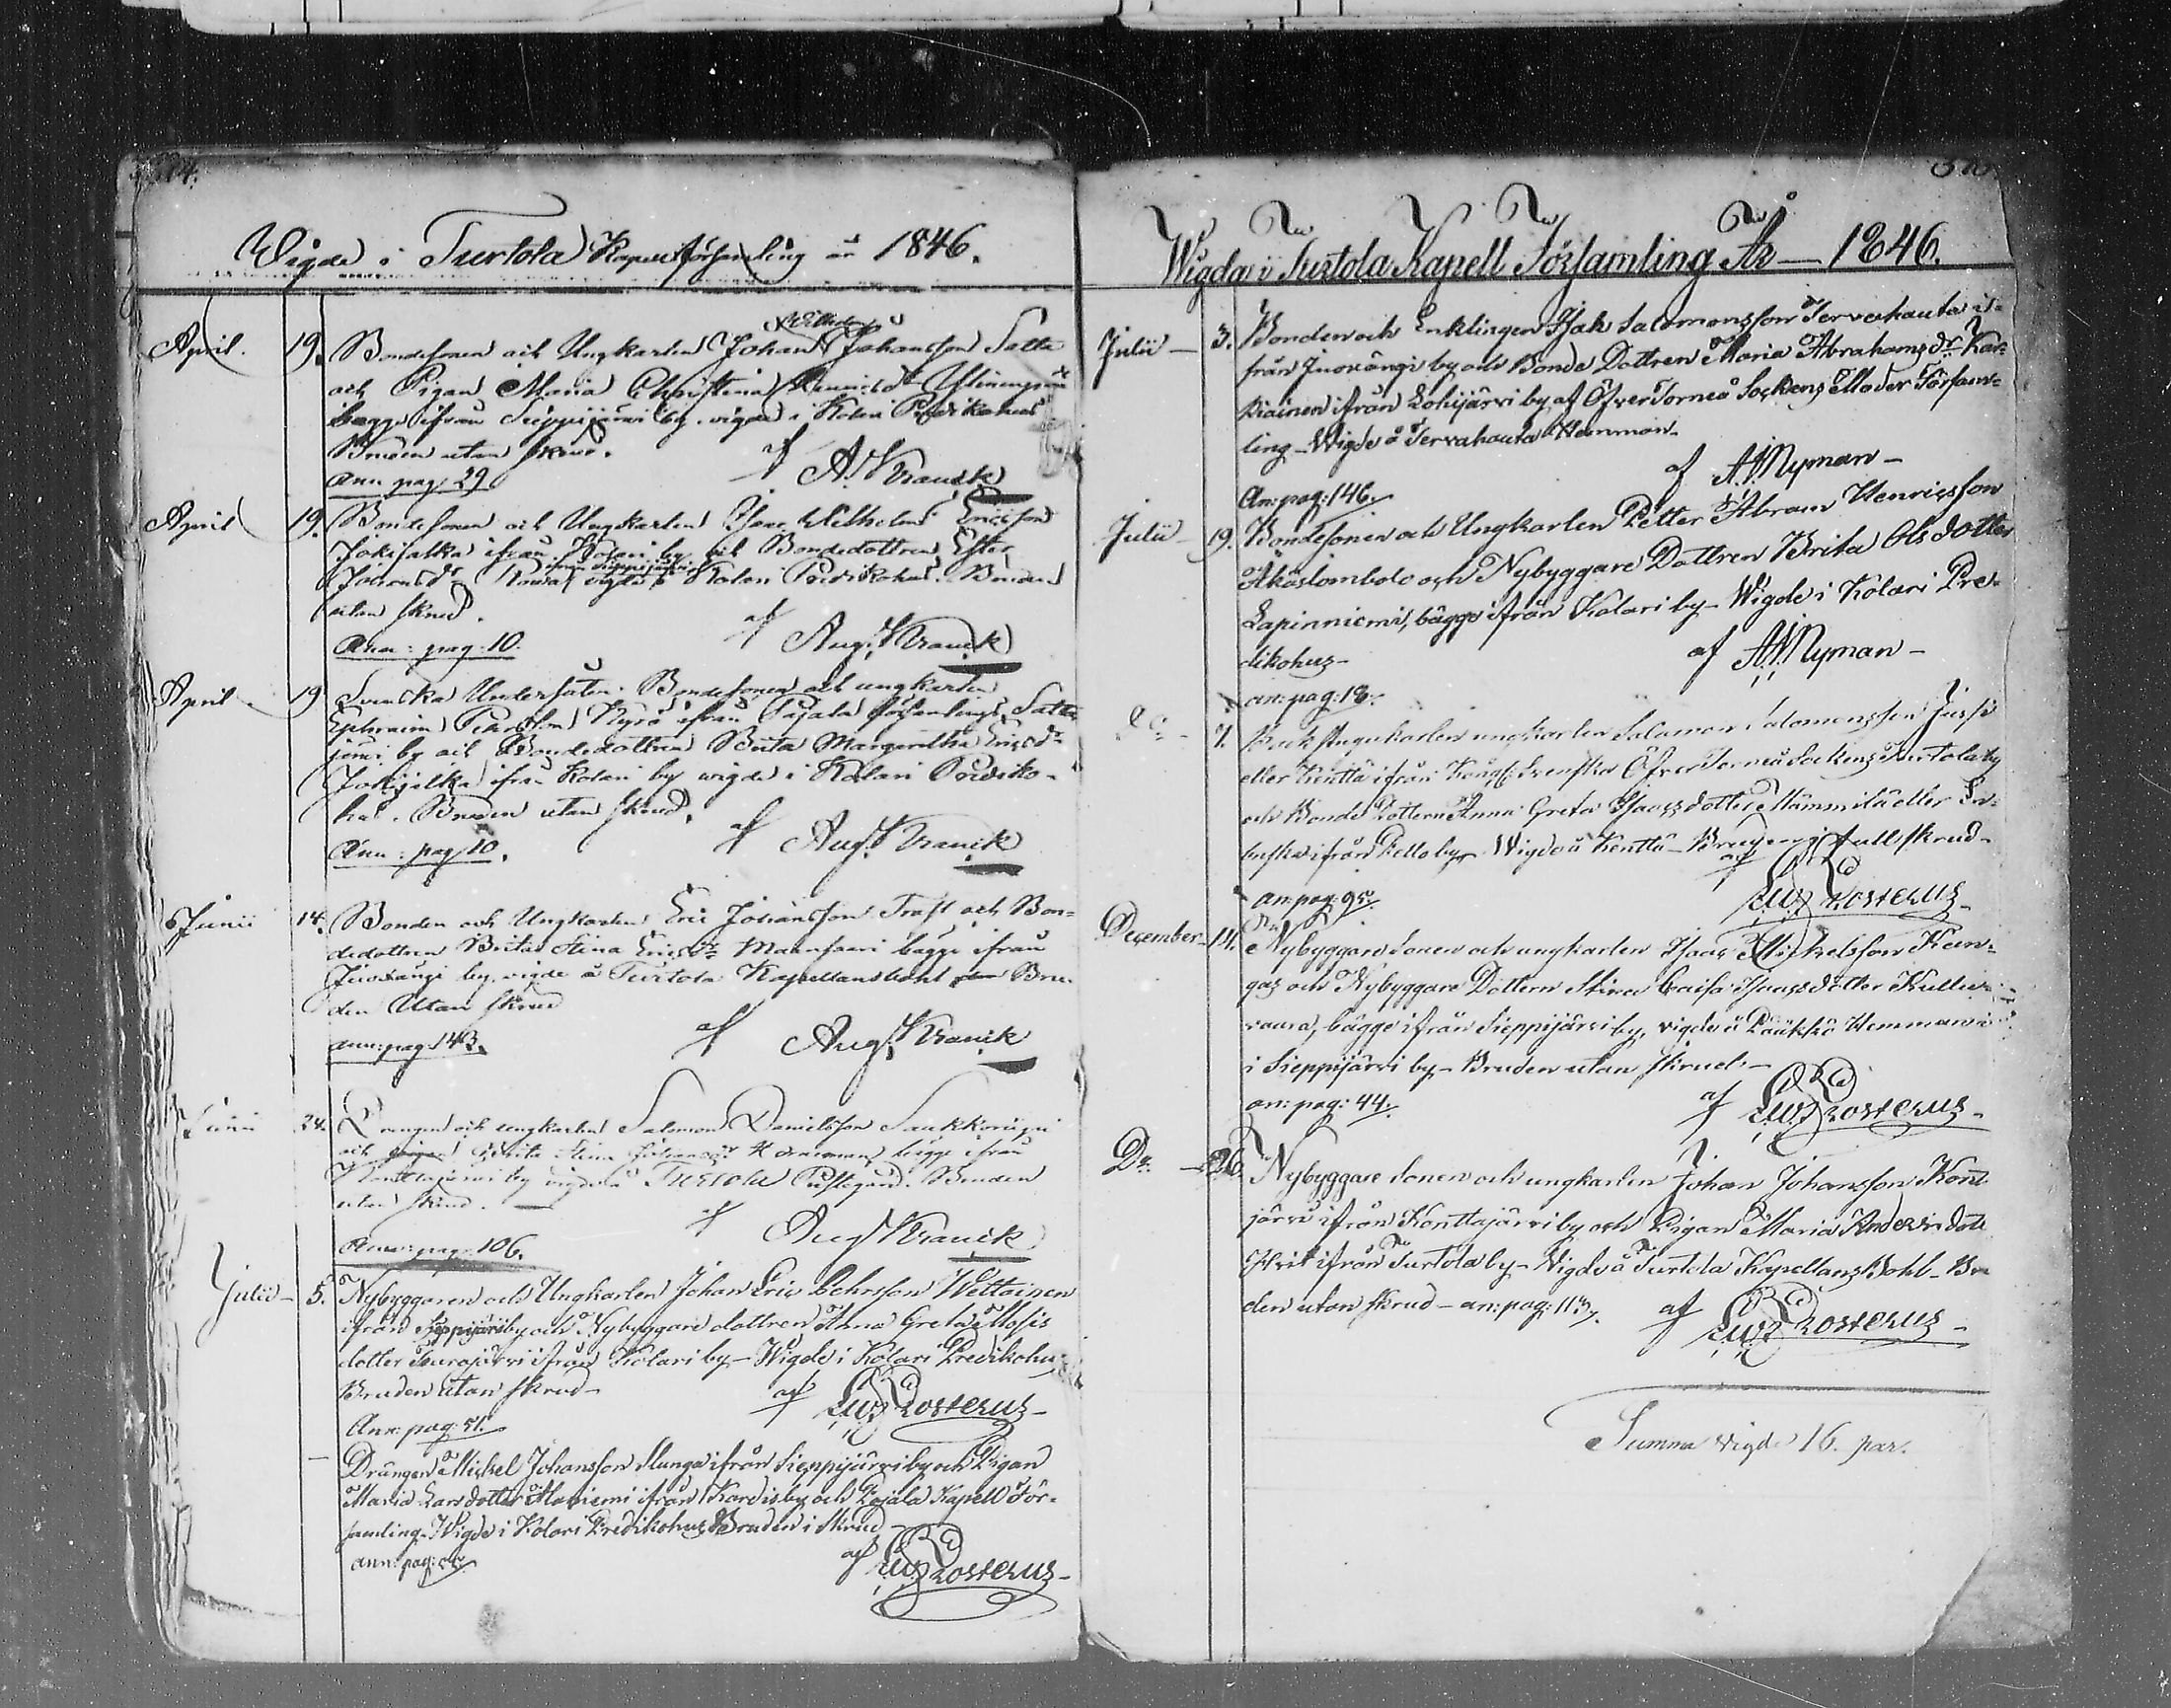 Wigde i Turtola Kapellförsamling år 1846.
April. 19. Bondesonen och Ungkarlen Johan Wilhelm Johansson Satta
och Pigan Maria Christina Henricsdr
bägge ifrån Sieppijärvi by. vigde i Kolari Predikohus
Bruden utan skrud.
Ann. pag: 29. af A. Kranck
April 19. Bondesonen och Ungkarlen Isac Wilhelm Ericsson
Jokijalka ifrån Kolari by och Bondedottren Ester
Johansdr ifrån Sieppijärvi vigde i Kolari Predikohus. Bruden
utan skrud.
Ann: pag. 10. af Aug. Kranck
April 19 Svenska Undersåten Bondesonen och ungkarlen
Ephraim Pehrsson Kyrö ifrån Pajala församlings Satta
järvi by och Bondedottren Brita Margaretha Ericsdr
Jokijalka ifrån Kolari by vigde i Kolari Prediko-
hus. Bruden utan skrud.
Ann: pag. 10. af Aug. Kranck
Junii 14. Bonden och Ungkarlen Eric Johansson Traft och Bon-
dedottren Brita Stina Ericsdr bägge ifrån
Juoxangi by. vigde å Turtola Kapellansbohl Bru-
den Utan skrud
ann: pag. 143. af Aug. Kranck
Junii 24. Drengen och ungkarlen Salomon Danielsson
och pigan Brita Stina Johansdr bägge ifrån
Konttajärvi by vigde å Turtola Prestgård. Bruden
utan skrud.
Ann: pag. 106. af Aug Kranck
Julii 5. Nybyggaren och Ungkarlen Johan Eric Pehrsson Wettainen
ifrån Sieppijärvi by och Nybyggare dottren Anna Greta Mosis
dotter Teurajärvi ifrån Kolari by - Wigde i Kolari Predikohus
Bruden utan skrud -
Ann: pag: 51. af Prosterus -
Drängen Michel Johansson Munga ifrån Sieppijärvi by och Pigan
Maria Larsdotter Alaniemi ifrån Kardis by och Pajala Kapell För-
samling. Wigde i Kolari Predikohus Bruden i skrud -
ann: pag: af Prosterus -
Wigda i Turtola Kapell Församling År - 1846.
Julii - 3. Bonden och Enklingen Isak Salomonsson Tervahauta i-
från Juoxängi by och Bonde Dottren Maria Abrahamsdr Kar-
kiainen ifrån Lohijärvi by af Öfver Torneå Sockens Moder Försam-
ling - Wigde å Tervahauta Hemman -
An: pag: 146. af A. J. Nyman -
Julii - 19. Bondesonen och Ungkarlen Petter Abram Henricsson
Äkäslombolo och Nybyggare Dottren Brita Olsdotter
Lapinniemi, bägge ifrån Kolari by - Wigde i Kolari Pre-
dikohus -
an: pag: 18. af A. J. Nyman -
7. ungkarlen Salomon Salomonsson Jussi
eller Kenttä ifrån Kongl: Svenska Öfver Torneå Sockens Turtola by
och Bonde Dottern Anna Greta Isacsdotter Mämmilä eller
ifrån Pello by - Wigde å Kenttä - full skrud -
an: pag: 95. af Prosterus -
December - 11. Nybyggare Sonen och ungkarlen Isac Michelsson Kan-
gas och Nybyggare Dottern Stina Caisa Isacsdotter
vaara, bägge ifrån Sieppijärvi by, vigde å Pääkkö Hemman
i Sieppijärvi by - Bruden utan skrud -
an: pag: 44. af Prosterus -
Do. - 26 Nybyggare Sonen och ungkarlen Johan Johansson Kont-
järvi ifrån Konttajärvi by och Pigan Maria Andersdott
ifrån Turtola by - Vigde å Turtola Kapellans Bohl - Bru
den utan skrud - an: pag: 113. af Prosterus -
Summa vigde 16. par.